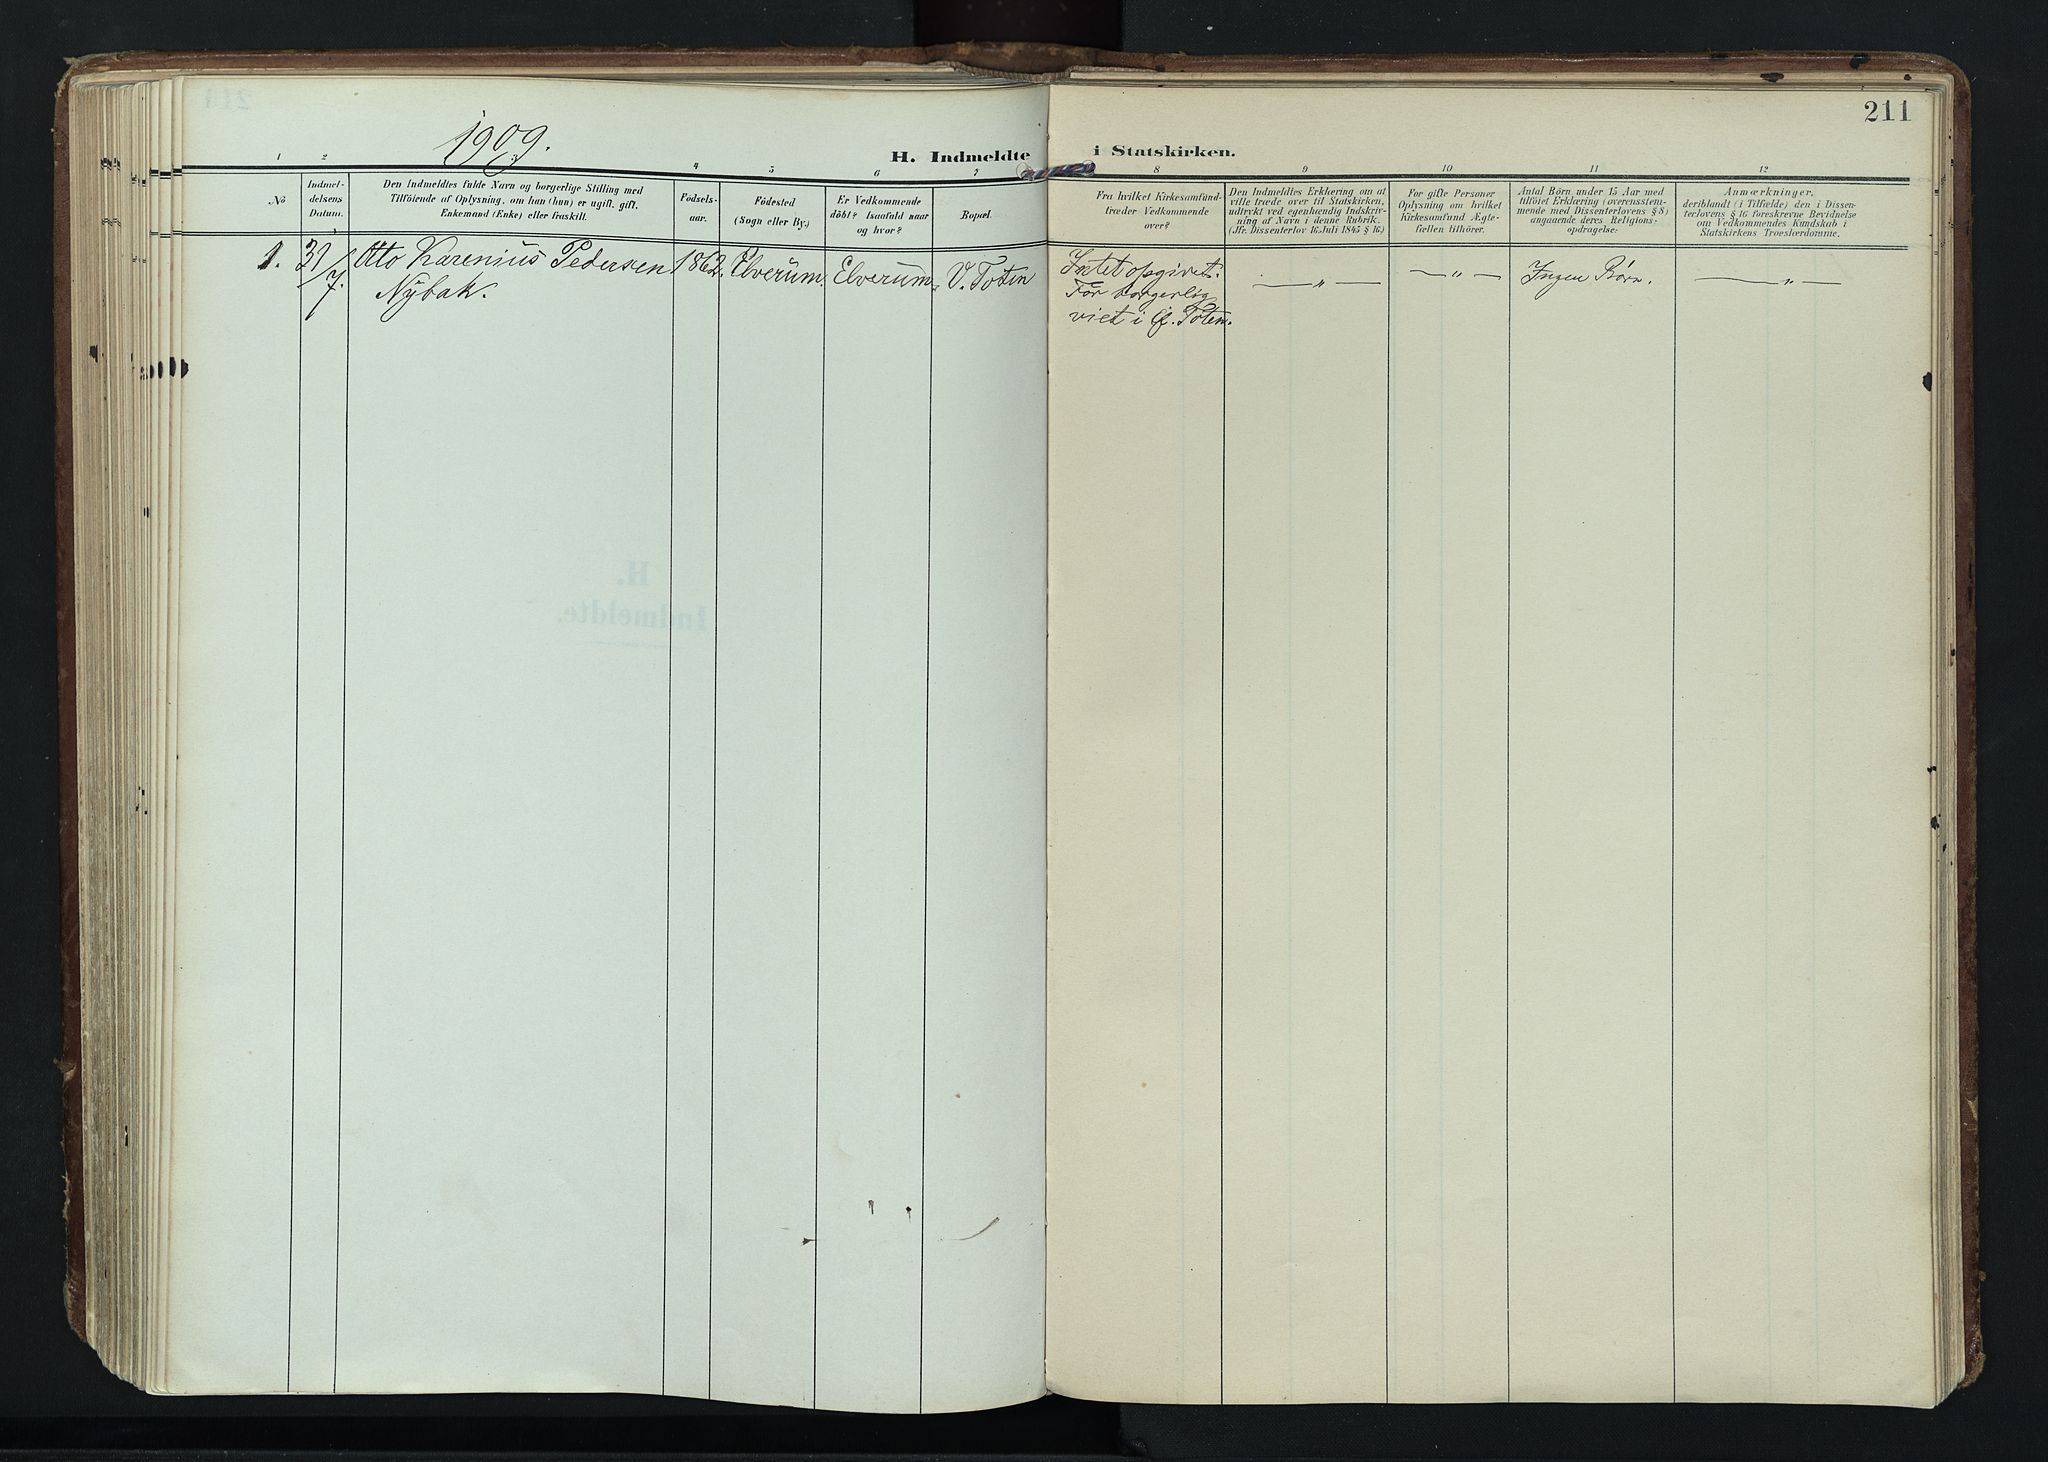 211
1909.
H. Indmeldte i Statskirken.
1 2 3 4 5 6 7 8 9 10 11 12
No
Indmel-
delsens
Datum.
Den Indmeldtes fulde Navn og borgerlige Stilling med
Tilföiende af Oplysning, om han (hun) er ugift, gift,
Enkemand (Enke) eller fraskilt.
Födsels-
aar.
Födested
(Sogn eller By.)
Er Vedkommende
döbt? Isaafald naar
og hvor?
Bopæl.
Fra hvilket Kirkesamfund
træder Vedkommende
over?
Den Indmeldtes Erklæring om at
ville træde over til Statskirken,
udtrykt ved egenhændig Indskriv-
ning af Navn i denne Rubrik.
(Jfr. Dissenterlov 16 Juli 1845 § 16.)
For gifte Personer
Oplysning om hvilket
Kirkesamfund Ægte-
fællen tilhörer.
Antal Börn under 15 Aar med
tilföiet Erklæring (overensstem-
mende med Dissenterlovens § 8)
angaaende deres Religions-
opdragelse:
Anmærkninger,
deriblandt (i Tilfælde) den i Dissen-
terlovens § 16 foreskrevne Bevidnelse
om Vedkommendes Kundskab i
Statskirkens Troeslærdomme.
1. 31/7. Otto Karenius Pedersen 1862. Elverum. Elverum. V. Toten
Nybak.
Intet opgivet.
Før borgerlig
viet i Ø. Toten.
— " —
— " —
Ingen Børn.
— " —
H.
Indmeldte.